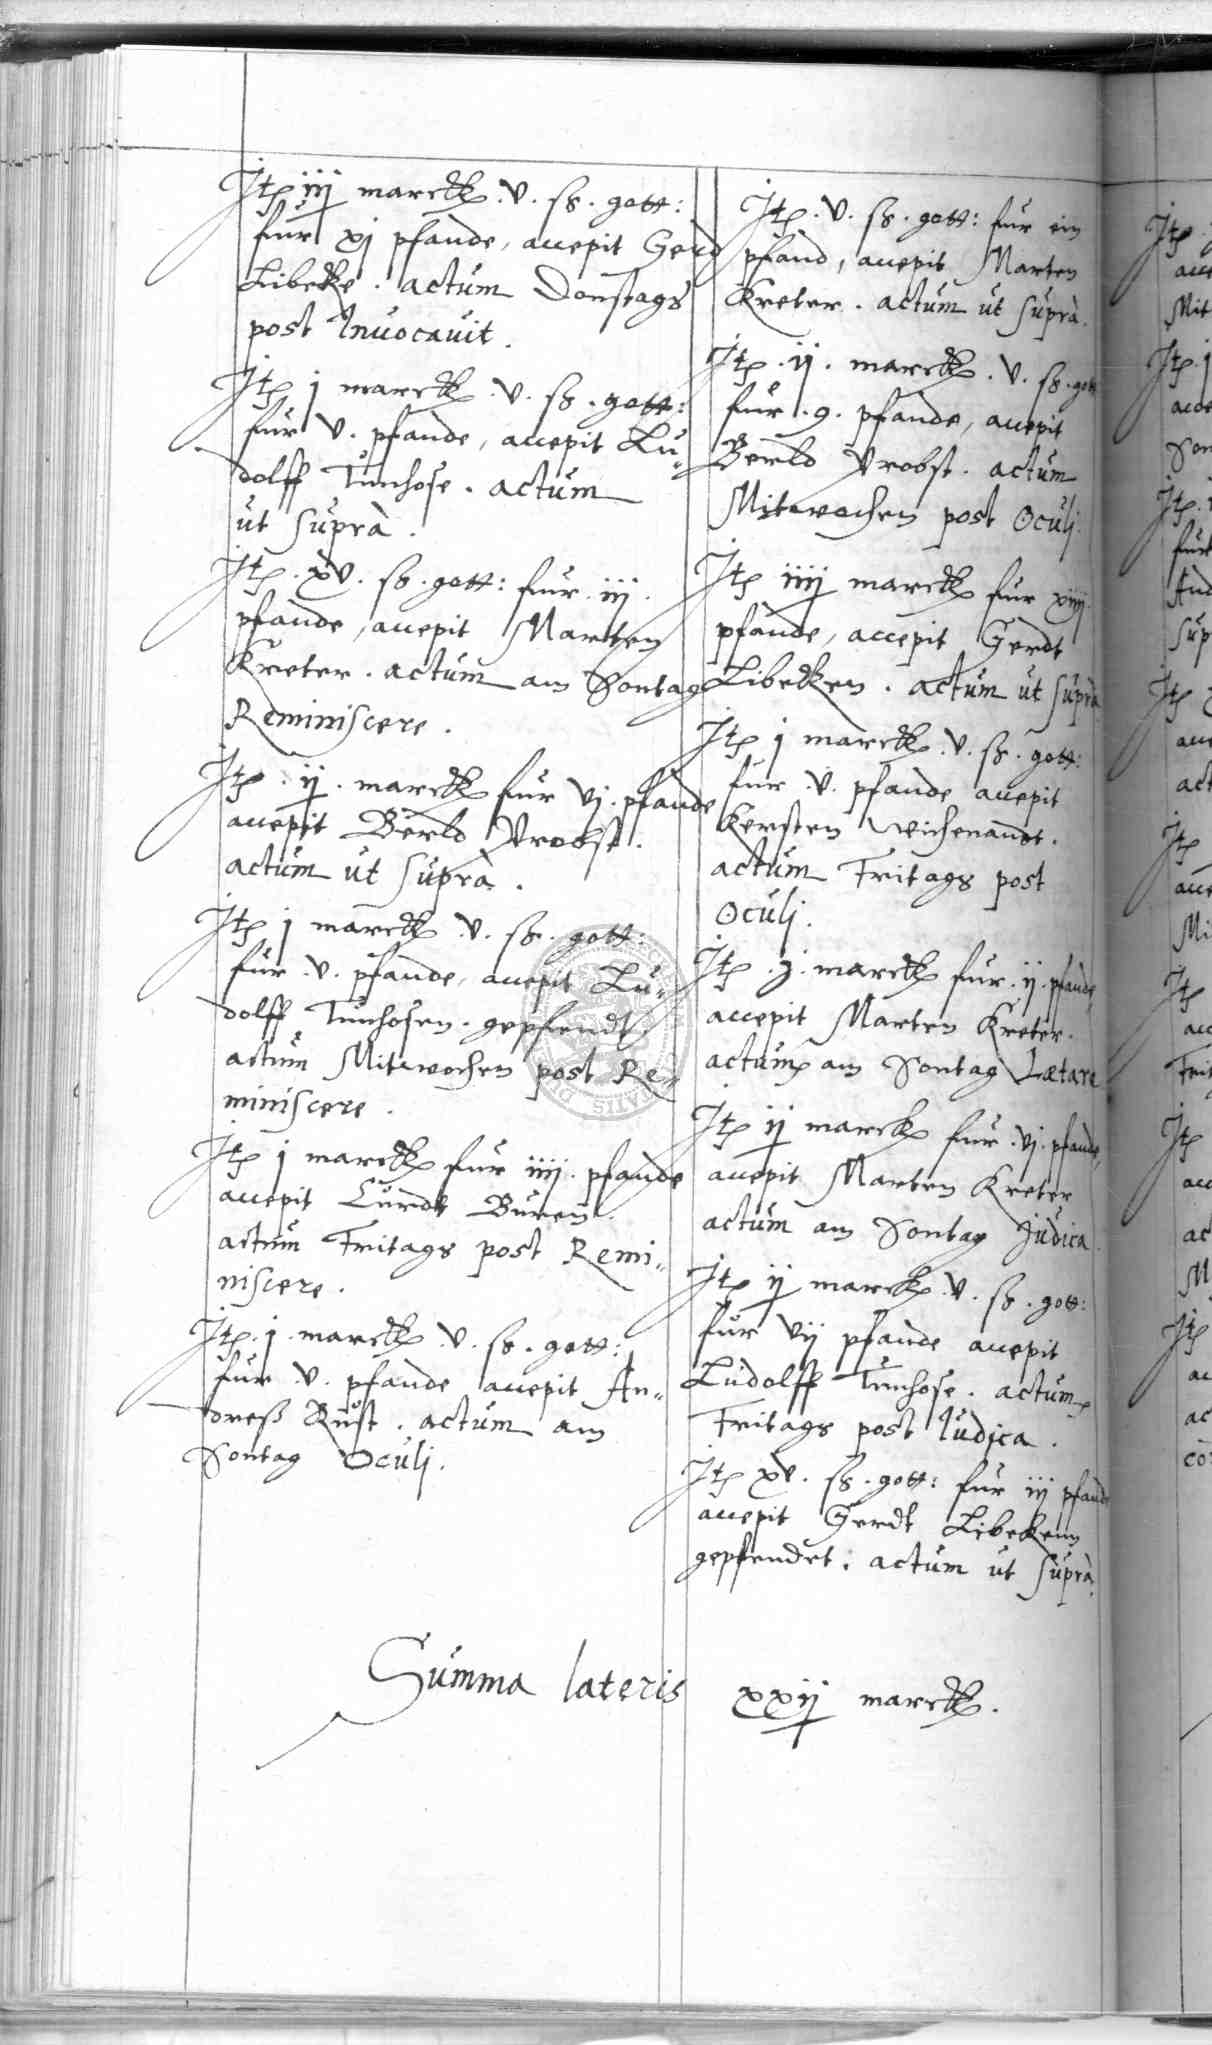 Itꝫ iij marckꝫ. v. sß. gott:
fur xj pfande, accepit Gerd
Libecke. actum Donstags
post Invocavit.
Itꝫ j marckꝫ. v. sß. gott:
fur v. pfande, accepit Lu-
dolff Tunhose. actum
ut suprà.
Itꝫ. xv. sß. gott: fur. iij.
pfande, accepit Marten
Kreter. actum am Sontag
Reminiscere.
Itꝫ. ij. marckꝫ fur vj. pfande
accepit Berld Probst.
actum ut suprà.
Itꝫ j marckꝫ. v. sß. gott:
fur. v. pfande, accepit Lu-
dolff Tunhosen. gepfendt
actum Mitwochen post Re-
miniscere.
Itꝫ j marckꝫ fur iiij. pfande
accepit Curdt Buren.
actum Fritags post Remi-
niscere.
Itꝫ. j. marckꝫ. v. sß. gott:
fur. v. pfande accepit An-
dreß Rust. actum am
Sontag Oculj.
Itꝫ. v. sß. gott: fur ein
pfand, accepit Marten
Kreter. actum ut suprà.
Itꝫ. ij. marckꝫ. v. sß. gott
fur. 9. pfande, accepit
Berld Probst. actum
Mitwochen post Oculj.
Itꝫ iiij marckꝫ fur xiiij.
pfande, accepit Gerdt
Libecken. actum ut suprà
Itꝫ j marckꝫ. v. sß. gott:
fur. v. pfande accepit
Kersten Wichenandt.
actum Fritags post
Oculj.
Itꝫ. j. marckꝫ fur. ij. pfande,
accepit Marten Kreter.
actum am Sontag Lætare
Itꝫ ij marckꝫ fur. vj. pfande,
accepit Marten Kreter
actum am Sontag Judica.
Itꝫ ij marckꝫ. v. sß. gott:
fur vij pfande accepit
Ludolff Tunhose. actum
Fritags post Iudica.
Itꝫ xv. sß. gott: fur iij pfande
accepit Gerdt Libekenn
gepfendet. actum ut suprà.
Summa lateris xxij marckꝫ.